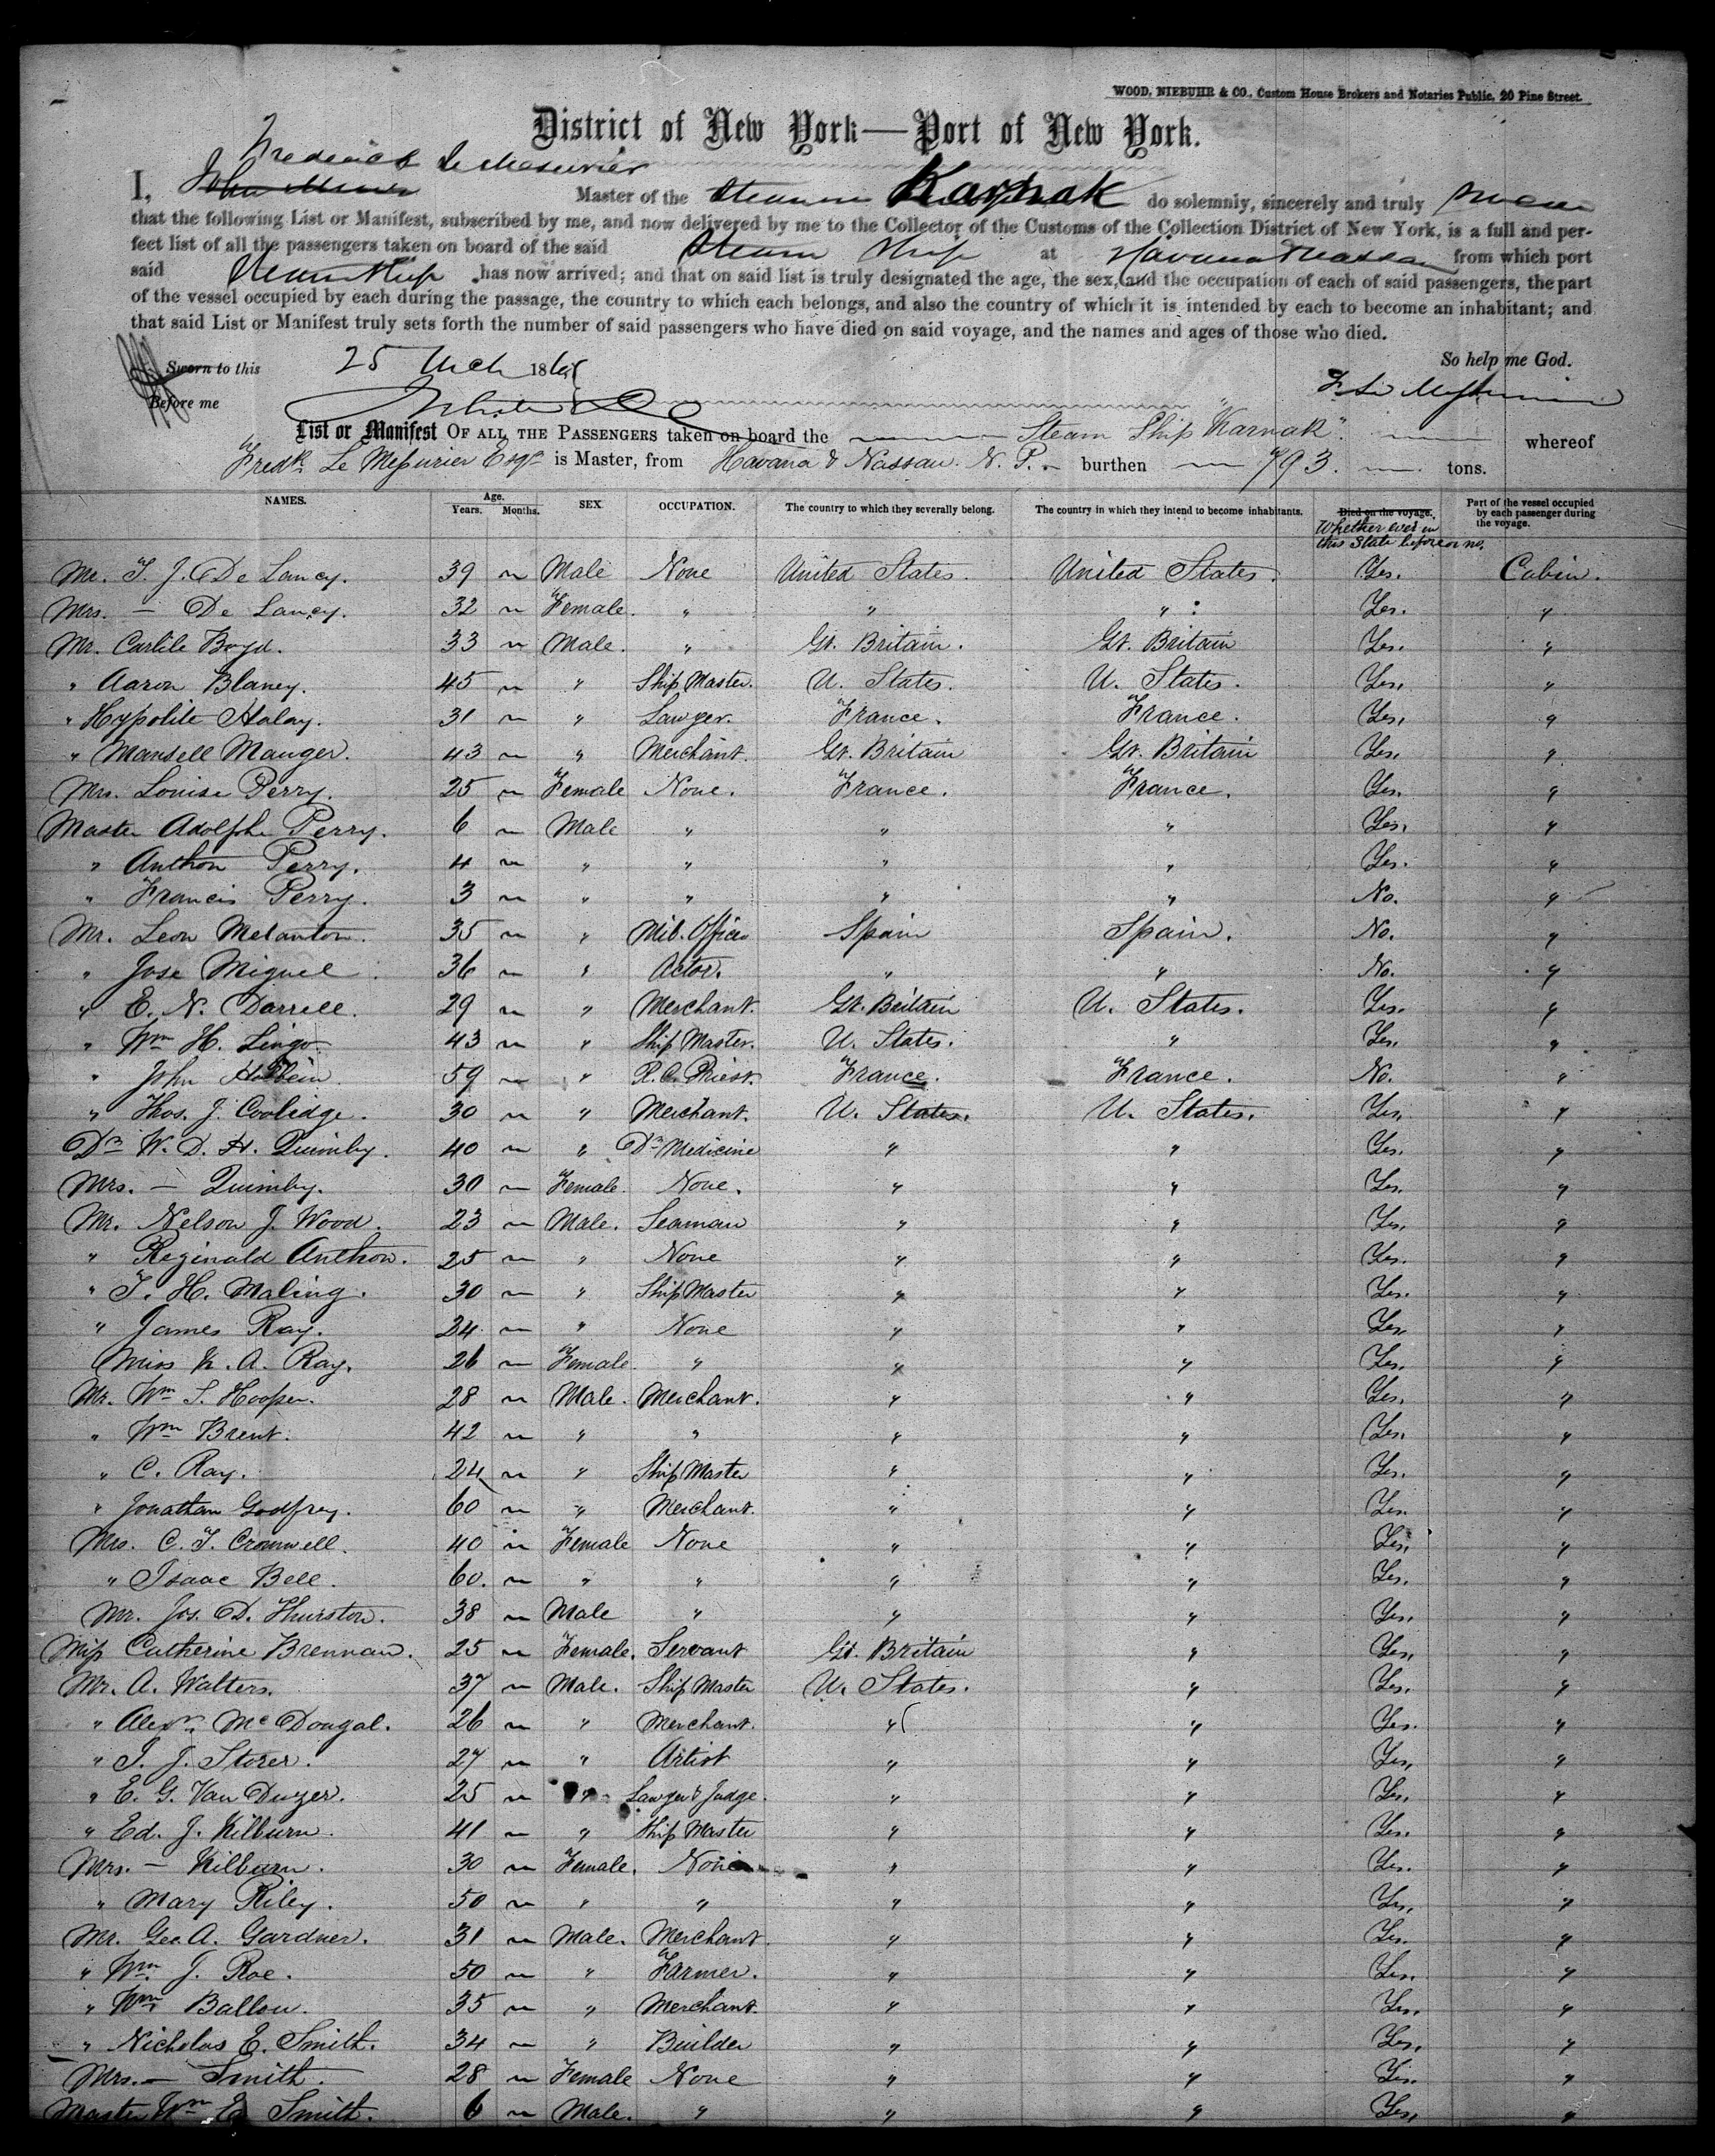 WOOD, NIEBUHR & CO., Custom House Brokers and Notaries Public, 20 Pine Street.
District of New York—Port of New York.
Frederick Le Mesurier
I, Master of the Steamer Karnak do solemnly, sincerely and truly swear
that the following List or Manifest, subscribed by me, and now delivered by me to the Collector of the Customs of the Collection District of New York, is a full and per-
fect list of all the passengers taken on board of the said Steam Ship at Havana & Nassau from which port
said Steam Ship has now arrived; and that on said list is truly designated the age, the sex, and the occupation of each of said passengers, the part
of the vessel occupied by each during the passage, the country to which each belongs, and also the country of which it is intended by each to become an inhabitant; and
that said List or Manifest truly sets forth the number of said passengers who have died on said voyage, and the names and ages of those who died.
Sworn to this 25 Mch 186 So help me God.
Before me
List or Manifest OF ALL THE PASSENGERS taken on board the Steam Ship "Karnak". whereof
Fredk. Le Messurier Esqr is Master, from Havana & Nassau. N. P. burthen 793. tons.
NAMES. Age. Years. Months. SEX OCCUPATION. The country to which they severally belong. The country in which they intend to become inhabitants. Died on the voyage. Part of the vessel occupied by each passenger during the voyage.
Whether ever in this State before or no.
Mr. T. J. De Lancy. 39 ~ Male None United States. United States. Yes. Cabin.
Mrs. — De Lancy. 32 ~ Female. " " " Yes. "
Mr. Carlile Boyd. 33 ~ Male. " Gt. Britain. Gt. Britain Yes. "
" Aaron Blaney. 45 ~ " Ship Master. U. States. U. States. Yes, "
" Hypolite Halay. 31 ~ " Lawyer. France. France. Yes, "
" Mansell Mauger. 43 ~ " Merchant. Gt. Britain Gt. Britain Yes. "
Mrs. Louise Perry. 25 ~ Female None. France. France. Yes. "
Master Adolphe Perry. 6 ~ Male " " " Yes, "
" Anthon Perry. 4 ~ " " " " Yes. "
" Francis Perry. 3 ~ " " " " No. "
Mr. Leon Metanton. 35 ~ " Mil. Officer Spain Spain. No. "
" Jose Miguel. 36 ~ " Actor. " " No. "
" E. N. Darrell. 29 ~ " Merchant. Gt. Britain U. States. Yes. "
" Wm H. Lingo. 43 ~ " Ship Master. U. States. " Yes. "
" John 59 ~ " R. C. Priest. France. France. No. "
" Thos. J. Coolidge. 30 ~ " Merchant. U. States. U. States. Yes, "
Dr. W. D. H. Quimby. 40 ~ " Dr. Medicine " " Yes. "
Mrs. — Quimby. 30 ~ Female. None. " " Yes. "
Mr. Nelson J. Wood. 23 ~ Male. Seaman " " Yes, "
" Reginald Anthon. 25 ~ " None " " Yes. "
" T. H. Maling. 30 ~ " Ship Master " " Yes. "
" James Ray. 24. ~ " None " " Yes, "
Miss K. A. Ray. 26 ~ Female. " " " Yes. "
Mr. Wm S. Hooper. 28 ~ Male. Merchant. " " Yes. "
" Wm Brent. 42 ~ " " " " Yes, "
" C. Ray. 24 ~ " Ship Master " " Yes. "
" Jonathan Godfrey. 60 ~ " Merchant. " " Yes. "
Mrs. C. T. Cromwell. 40 ~ Female None " " Yes, "
" Isaac Bell. 60. ~ " " " " Yes, "
Mr. Jos. D. Thurston. 38 ~ Male " " " Yes, "
Miss Catherine Brennan. 25 ~ Female. Servant Gt. Britain " Yes, "
Mr. A. Walters. 37 ~ Male. Ship Master U. States. " Yes. "
" Alexr. McDougal. 26 ~ " Merchant. " " Yes. "
" I. J. Storer. 27 ~ " Artist " " Yes, "
" E. G. Van Duzer. 25 ~ " Lawyer & Judge. " " Yes, "
" Ed. J. Kilburn. 41 ~ " Ship Master " " Yes. "
Mrs. — Kilburn. 30 ~ Female. None " " Yes. "
" Mary Riley. 50 ~ " " " " Yes, "
Mr. Geo. A. Gardner. 31 ~ Male. Merchant. " " Yes. "
" Wm. J. Roe. 50 ~ " Farmer. " " Yes. "
" Wm Ballou. 35 ~ " Merchant. " " Yes, "
" Nicholas E. Smith. 34 ~ " Builder " " Yes, "
Mrs. — Smith. 28 ~ Female None " " Yes. "
Master Wm E. Smith. 6 ~ Male. " " " Yes, "